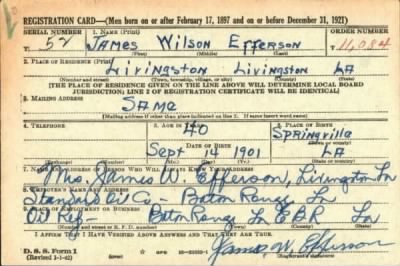 REGISTRATION CARD—(Men born on or after February 17, 1897 and on or before December 31, 1921)
SERIAL NUMBER 1. NAME (Print) ORDER NUMBER
52 JAMES Wilson Efferson 11,084
(First) (Middle) (Last)
2. PLACE OF RESIDENCE (Print)
Livingston Livingston LA
(Number and street) (Town, township, village, or city) (County) (State)
[THE PLACE OF RESIDENCE GIVEN ON THE LINE ABOVE WILL DETERMINE LOCAL BOARD
JURISDICTION; LINE 2 OF REGISTRATION CERTIFICATE WILL BE IDENTICAL]
3. MAILING ADDRESS
SAME
[Mailing address if other than place indicated on line 2. If same insert word same]
4. TELEPHONE 5. AGE IN YEARS 6. PLACE OF BIRTH
40 SPRINGVILLE
DATE OF BIRTH
Sept 14 1901 LA
(Exchange) (Number) (Mo.) (Day) (Yr.) (State or country)
7. NAME AND ADDRESS OF PERSON WHO WILL ALWAYS KNOW YOUR ADDRESS
Mrs James W. Efferson, Livingston La
8. EMPLOYER'S NAME AND ADDRESS
Standard Oil Co - Baton Rouge La
9. PLACE OF EMPLOYMENT OR BUSINESS
Oil Ref - Baton Rouge La E.B.R. La
(Number and street or R. F. D. number) (Town) (County) (State)
I AFFIRM THAT I HAVE VERIFIED ABOVE ANSWERS AND THAT THEY ARE TRUE.
D. S. S. Form 1
(Revised 1-1-42) GPO James W. Efferson